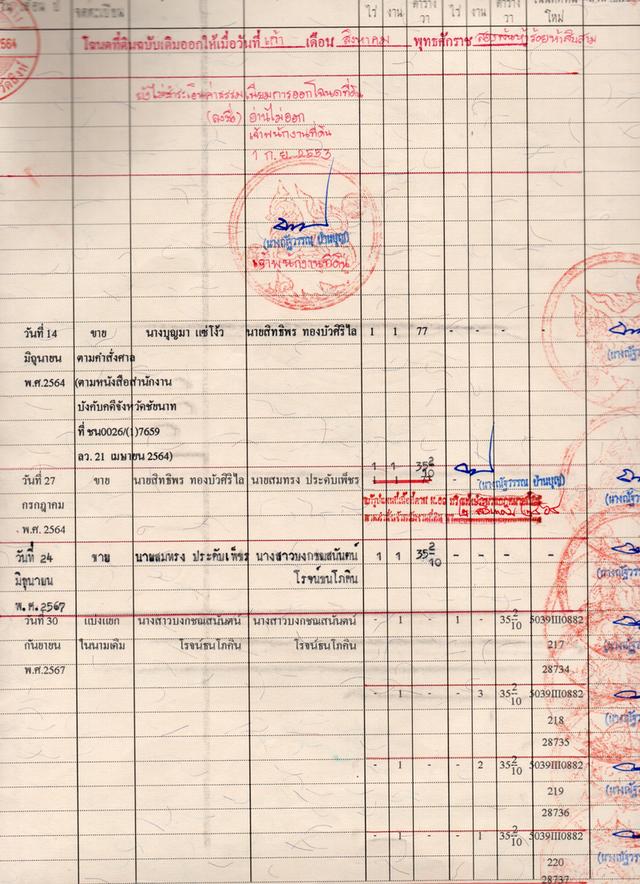 จดทะเบียน ไร่ งาน ตาราง วา ไร่ งาน ตาราง วา ใหม่
2564 โฉนดที่ดินฉบับเดิมออกให้เมื่อวันที่ เก้า เดือน สิงหาคม พุทธศักราช สองพันห้าร้อยห้าสิบสาม
ยังไม่ชำระเงินค่าธรรมเนียมการออกโฉนดที่ดิน
(ลงชื่อ) อ่านไม่ออก
เจ้าพนักงานที่ดิน
1 ก.ย. 2553
(นางณัฐวรรณ บ้านบุญ)
เจ้าพนักงานที่ดิน
วันที่ 14 ขาย นางบุญมา แซ่โง้ว นายสิทธิพร ทองบัวศิริไล 1 1 77 - - - -
มิถุนายน ตามคำสั่งศาล
พ.ศ.2564 (ตามหนังสือสำนักงาน
บังคับคดีจังหวัดชัยนาท
ที่ ชน0026/(1)7659
ลว. 21 เมษายน 2564)
1 1 35 2/10
วันที่ 27 ขาย นายสิทธิพร ทองบัวศิริไล นายสมทรง ประดับเพ็ชร 1 1 (นางณัฐวรรณ บ้านบุญ)
กรกฎาคม
พ.ศ. 2564
วันที่ 24 ขาย นายสมทรง ประดับเพ็ชร นางสาวบงกชณสนันตน์ 1 1 35 2/10 - - - -
มิถุนายน โรจน์ธนโภคิน
พ.ศ.2567
วันที่ 30 แบ่งแยก นางสาวบงกชณสนันตน์ นางสาวบงกชณสนันตน์ - 1 - 1 - 35 2/10 5039III0882
กันยายน ในนามเดิม โรจน์ธนโภคิน โรจน์ธนโภคิน 217
พ.ศ.2567 28734
- 1 - - 3 35 2/10 5039III0882
218
28735
- 1 - - 2 35 2/10 5039III0882
219
28736
- 1 - - 1 35 2/10 5039III0882
220
28737